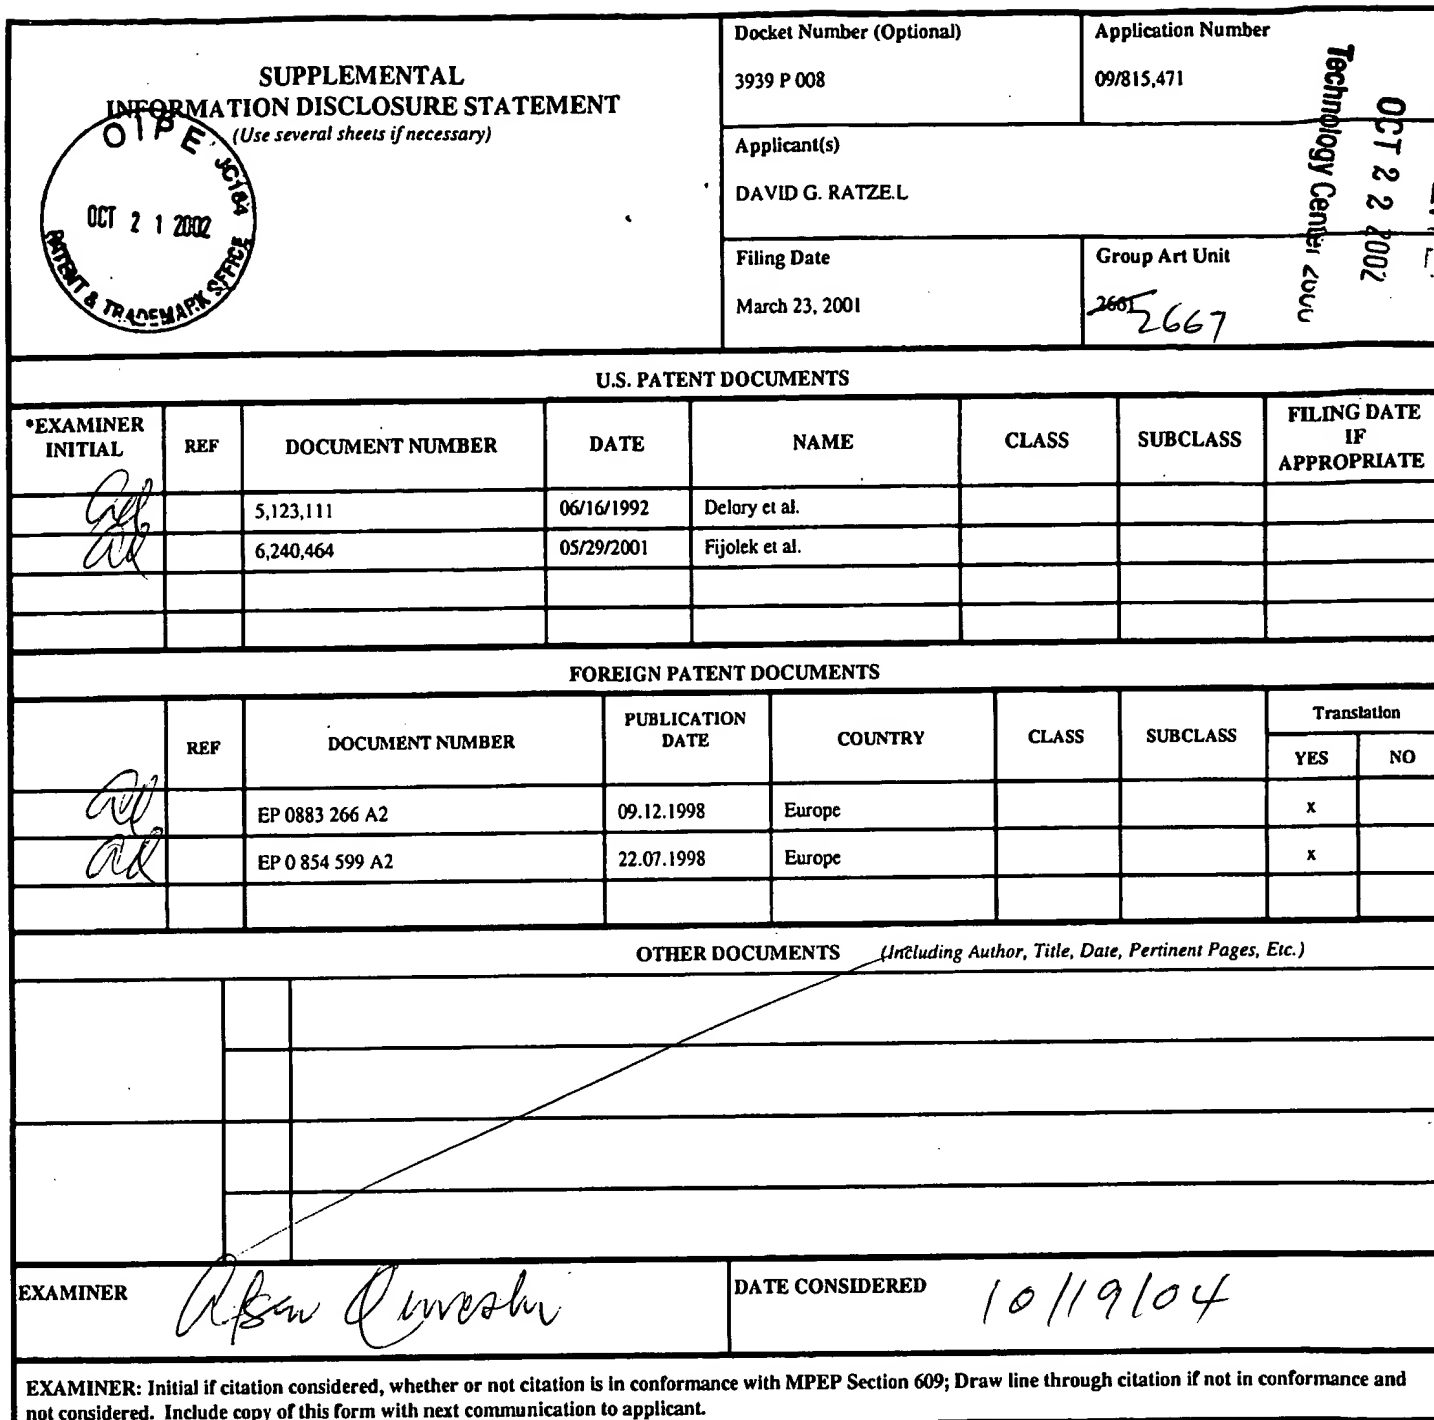 SUPPLEMENTAL
INFORMATION DISCLOSURE STATEMENT
(Use several sheets if necessary)
OIPE JC164
OCT 2 1 2002
PATENT & TRADEMARK OFFICE
Docket Number (Optional)
3939 P 008
Application Number
09/815,471
Applicant(s)
DAVID G. RATZE.L
Filing Date
March 23, 2001
Group Art Unit
2661
2667
OCT 2 2 2002
Technology Center 2600
U.S. PATENT DOCUMENTS
*EXAMINER INITIAL REF DOCUMENT NUMBER DATE NAME CLASS SUBCLASS FILING DATE IF APPROPRIATE
5,123,111 06/16/1992 Delory et al.
6,240,464 05/29/2001 Fijolek et al.
FOREIGN PATENT DOCUMENTS
REF DOCUMENT NUMBER PUBLICATION DATE COUNTRY CLASS SUBCLASS Translation YES NO
EP 0883 266 A2 09.12.1998 Europe x
EP 0 854 599 A2 22.07.1998 Europe x
OTHER DOCUMENTS (Including Author, Title, Date, Pertinent Pages, Etc.)
EXAMINER Afsar Qureshi
DATE CONSIDERED 10/19/04
EXAMINER: Initial if citation considered, whether or not citation is in conformance with MPEP Section 609; Draw line through citation if not in conformance and
not considered. Include copy of this form with next communication to applicant.